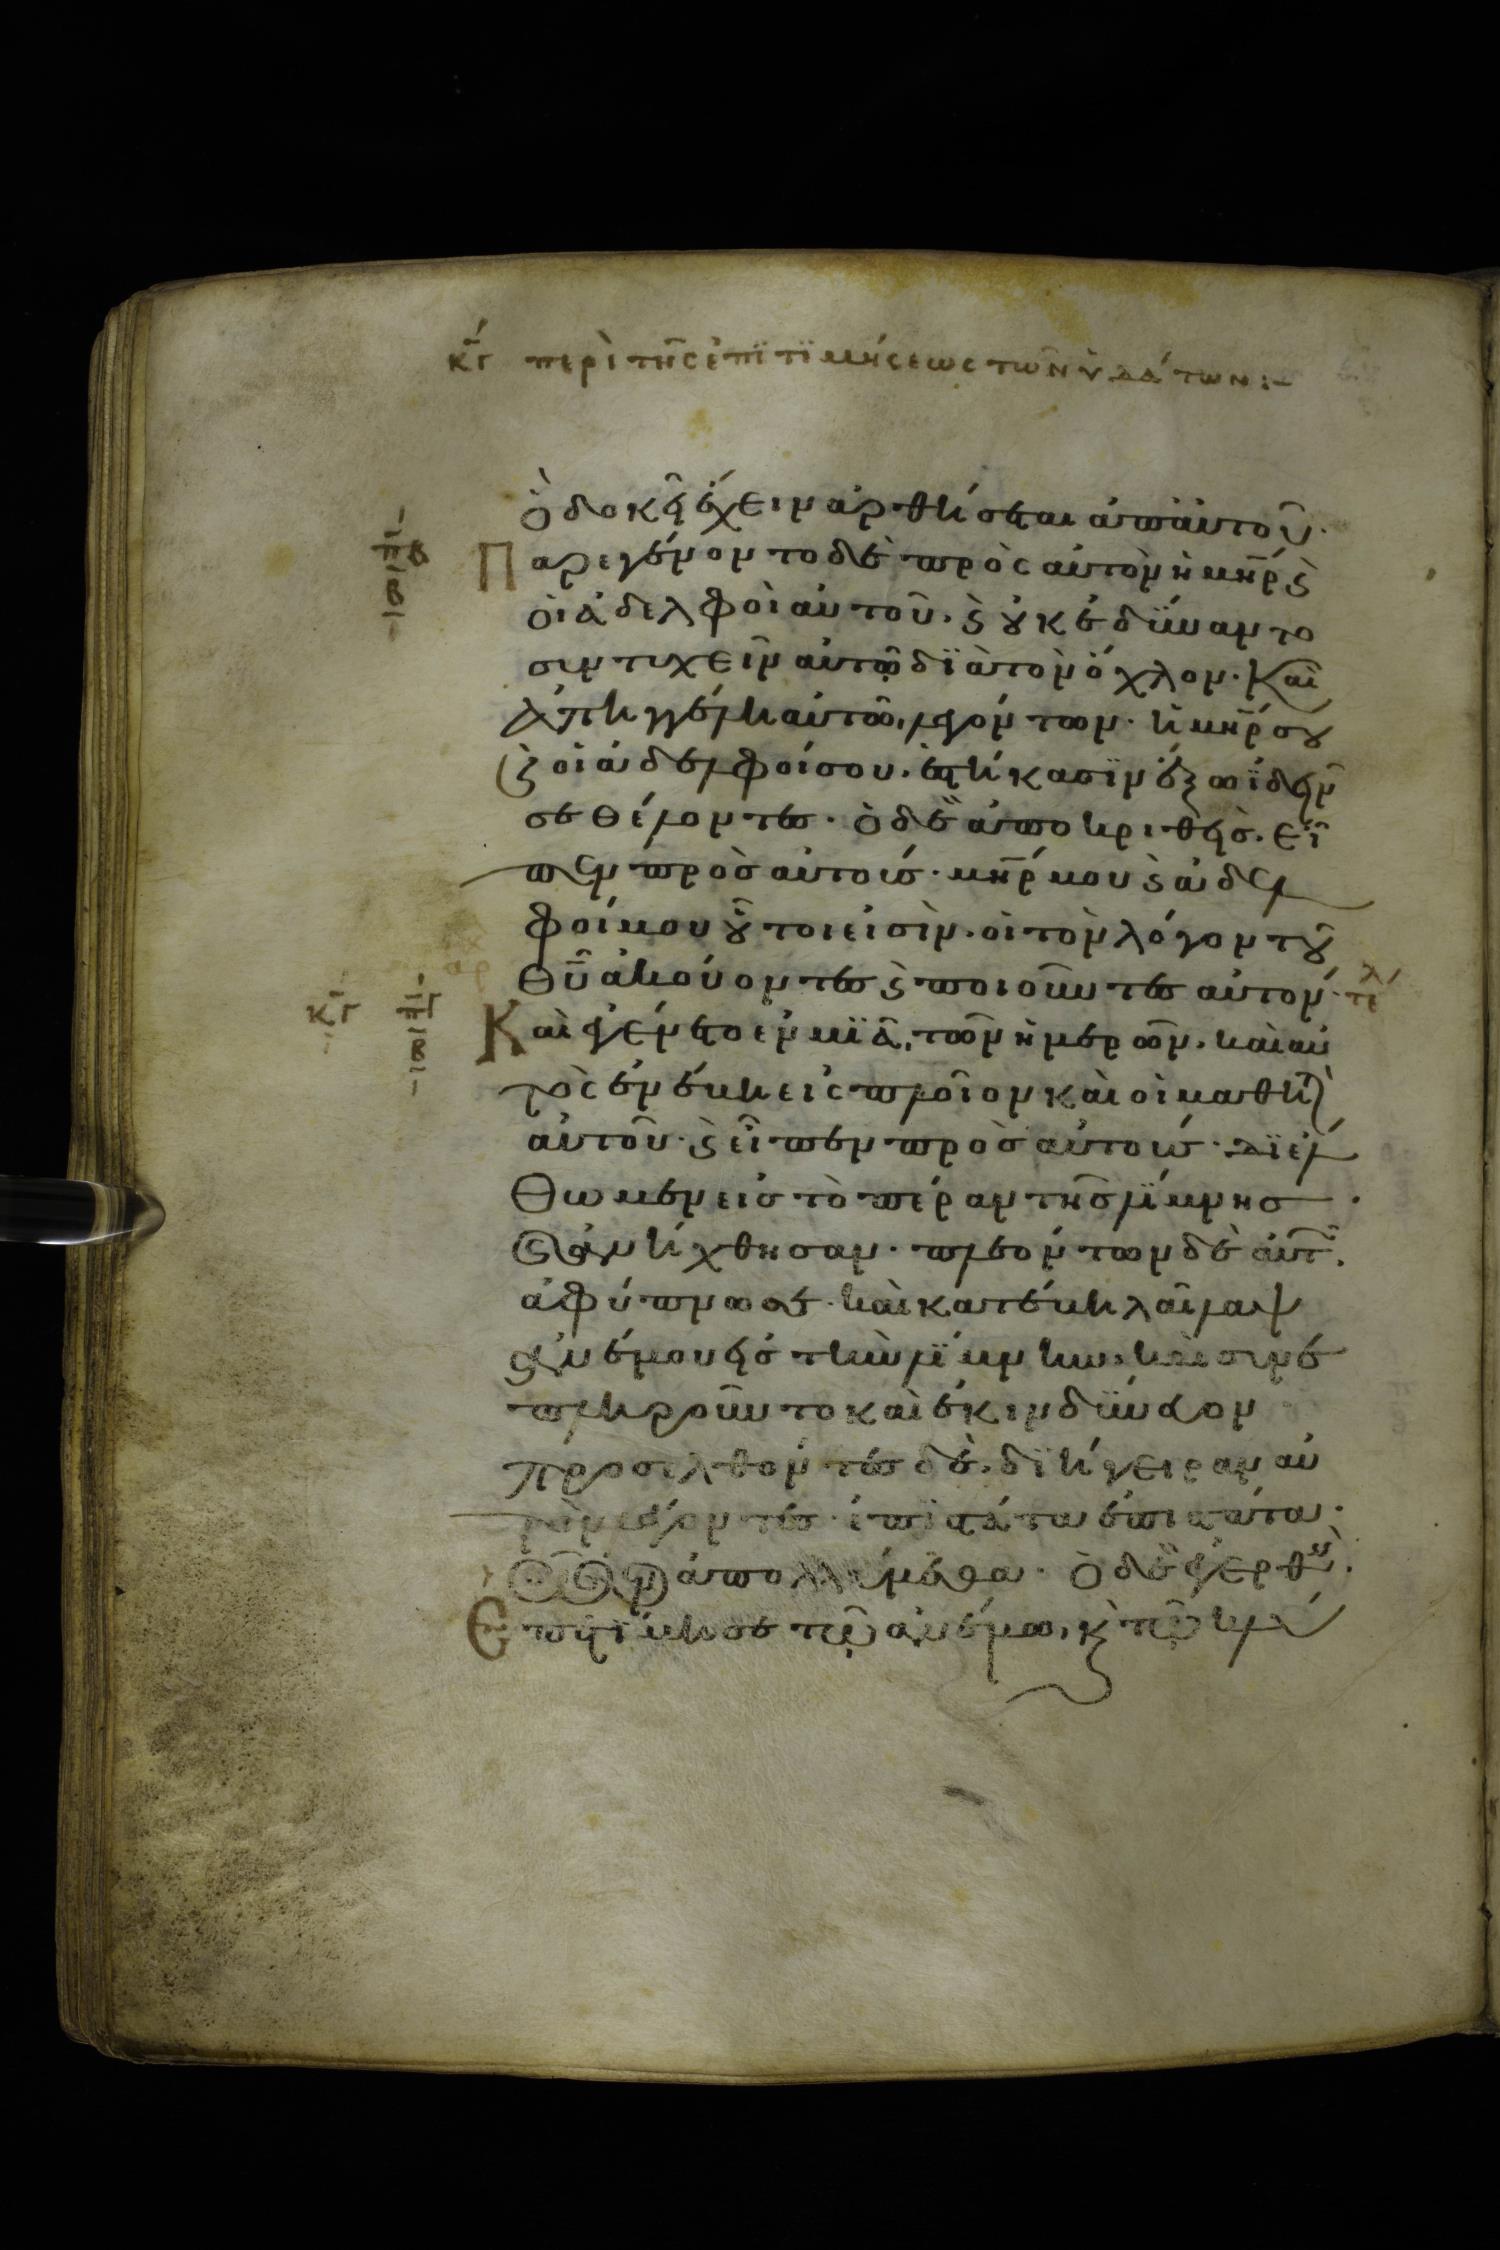 κγ περὶ τῆς ἐπϊτϊμήσεως τῶν ὑδάτων:-
ὃ δοκεῖ ἔχειν ἀρθήσεται ἀπ' αὐτοῦ·
πβ
β
Παρεγένοντο δὲ πρὸς αὐτὸν ἡ μηρ ϗ
οἱ ἀδελφοὶ αὐτοῦ. ϗ οὐκ ἐδϋναντο
συντυχεῖν αὐτῶ δϊὰ τὸν ὄχλον· Καὶ
ἀπηγγέλη αὐτῶ, λεγόντων· ἡ μηρ σου
ϗ οἱ ἀδελφοί σου. ἑστήκασϊν ἔξω ϊδεῖν
σε θέλοντες· ὁ δὲ ἀποκριθεὶς. εἶ
πεν πρὸς αὐτούς· μηρ μου ϗ ἀδελ
φοί μου οὗτοι εἰσὶν. οἱ τὸν λόγον τοῦ
θυ ἀκούοντες ϗ ποιοῦντες αὐτόν· τέλ
κγ
πγ
β
αρχ
Καὶ ἐγένετο ἐν μϊᾶ, τῶν ἡμερῶν. καὶ αὐ
τὸς ἐνέβη εἰς πλοῖον καὶ οἱ μαθηταὶ
αὐτοῦ· ϗ εἶπεν πρὸς αὐτούς· Δϊέλ
θωμεν εἰς τὸ πέραν τῆς λΐμνης·
ϗ ἀνήχθησαν· πλεόντων δὲ αὐτῶν.
ἀφύπνωσε· καὶ κατέβη λαῖλαψ
ἀνέμου εἰς τὴν λΐμνην, καὶ συνε
πληροῦντο καὶ ἐκινδϋνευον
Προσελθόντες δὲ. δϊήγειραν αὐ
τὸν λέγοντες· ἐπϊστάτα ἐπιστάτα·
ἀπολλύμεθα· ὁ δὲ ἐγερθεὶς.
Ἐπετΐμησε τῶ ἀνέμω, κ τῶ κλύ